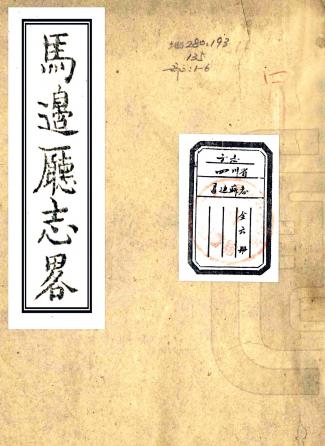 馬邊廳志畧
地280.193
135
部:1-6
方志
四川省
馬邊廳志
全六冊